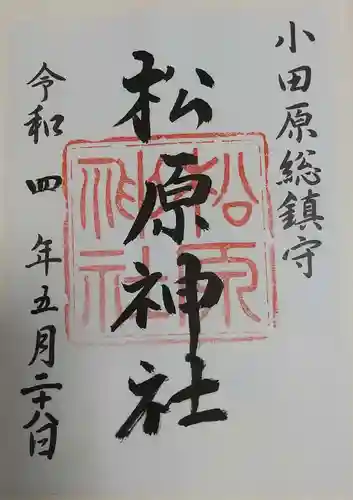 小田原総鎮守
松原神社
令和四年五月二十八日
松原神社